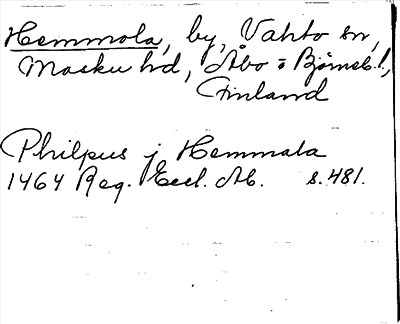 Hemmola, by, Vahto sn,
Masku hd, Åbo o Björneb. l.,
Finland
Philpus j Hemmala
1464 Reg. Eccl. Ab. s. 481.